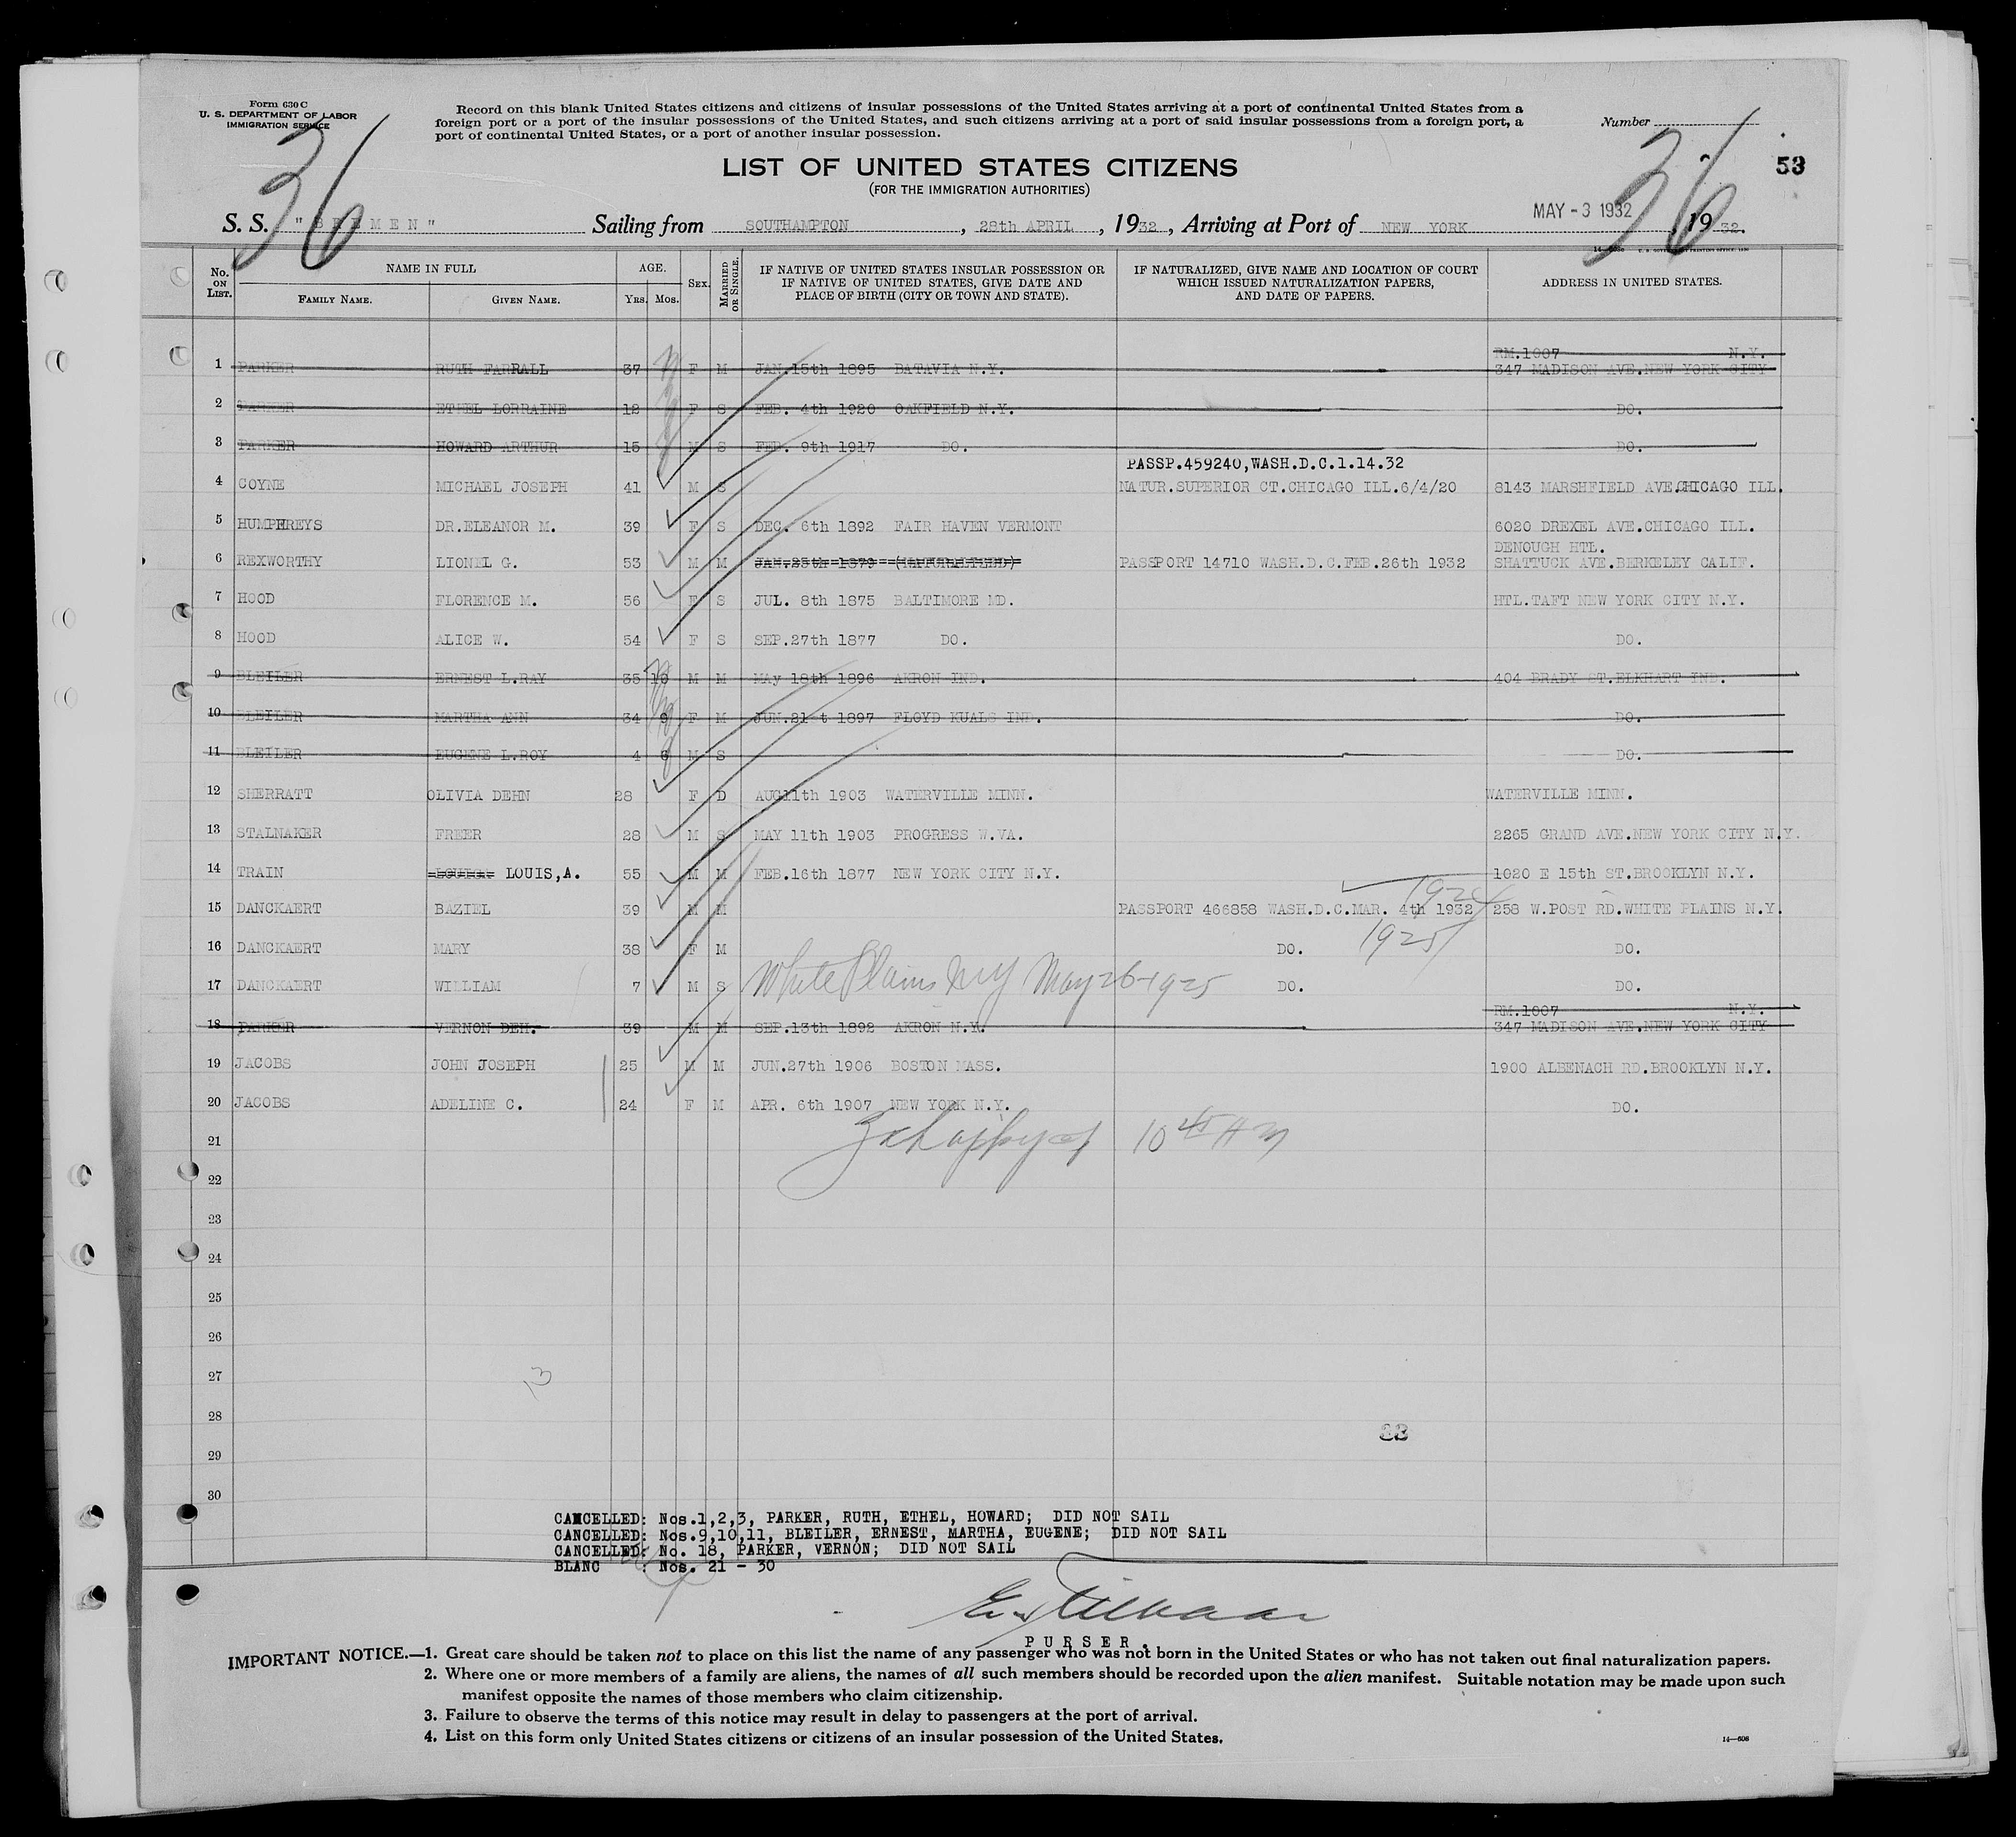 Form 630 C
U. S. DEPARTMENT OF LABOR
IMMIGRATION SERVICE
Record on this blank United States citizens and citizens of insular possessions of the United States arriving at a port of continental United States from a
foreign port or a port of the insular possessions of the United States, and such citizens arriving at a port of said insular possessions from a foreign port, a
port of continental United States, or a port of another insular possession.
Number
36
36
53
LIST OF UNITED STATES CITIZENS
(FOR THE IMMIGRATION AUTHORITIES)
MAY -3 1932
S. S. "BREMEN" Sailing from SOUTHAMPTON, 28th APRIL, 1932, Arriving at Port of NEW YORK 1932.
No. ON LIST. NAME IN FULL FAMILY NAME. GIVEN NAME. AGE. YRS. MOS. SEX. MARRIED OR SINGLE. IF NATIVE OF UNITED STATES INSULAR POSSESSION OR IF NATIVE OF UNITED STATES, GIVE DATE AND PLACE OF BIRTH (CITY OR TOWN AND STATE). IF NATURALIZED, GIVE NAME AND LOCATION OF COURT WHICH ISSUED NATURALIZATION PAPERS, AND DATE OF PAPERS. ADDRESS IN UNITED STATES.
RM.1007 N.Y.
1 PARKER RUTH FARRALL 37 F M JAN.15th 1895 BATAVIA N.Y. 347 MADISON AVE.NEW YORK CITY
2 PARKER ETHEL LORRAINE 12 F S FEB. 4th 1920 OAKFIELD N.Y. DO.
3 PARKER HOWARD ARTHUR 15 M S FEB. 9th 1917 DO. DO.
PASSP.459240,WASH.D.C.1.14.32
4 COYNE MICHAEL JOSEPH 41 M S NATUR.SUPERIOR CT.CHICAGO ILL.6/4/20 8143 MARSHFIELD AVE.CHICAGO ILL.
5 HUMPHREYS DR.ELEANOR M. 39 F S DEC. 6th 1892 FAIR HAVEN VERMONT 6020 DREXEL AVE.CHICAGO ILL.
DENOUGH HTL.
6 REXWORTHY LIONEL G. 53 M M JAN.25th 1879 PASSPORT 14710 WASH.D.C.FEB.26th 1932 SHATTUCK AVE.BERKELEY CALIF.
7 HOOD FLORENCE M. 56 F S JUL. 8th 1875 BALTIMORE MD. HTL.TAFT NEW YORK CITY N.Y.
8 HOOD ALICE W. 54 F S SEP.27th 1877 DO. DO.
9 BLEILER ERNEST L.RAY 35 10 M M MAy 18th 1896 AKRON IND. 404 BRADY ST.ELKHART IND.
10 BLEILER MARTHA ANN 34 9 F M JUN.21st 1897 FLOYD KUALS IND. DO.
11 BLEILER EUGENE L.ROY 4 6 M S DO.
12 SHERRATT OLIVIA DEHN 28 F D AUG11th 1903 WATERVILLE MINN. WATERVILLE MINN.
13 STALNAKER FREER 28 M S MAY 11th 1903 PROGRESS W.VA. 2265 GRAND AVE.NEW YORK CITY N.Y.
14 TRAIN LOUIS,A. 55 M M FEB.16th 1877 NEW YORK CITY N.Y. 1020 E 15th ST.BROOKLYN N.Y.
15 DANCKAERT BAZIEL 39 M M PASSPORT 466858 WASH.D.C.MAR. 4th 1932 258 W.POST RD.WHITE PLAINS N.Y.
16 DANCKAERT MARY 38 F M DO. 1925 DO.
17 DANCKAERT WILLIAM 7 M S White Plains NY May 26-1925 DO. DO.
RM.1007 N.Y.
18 PARKER VERNON DEH. 39 M M SEP.13th 1892 AKRON N.Y. 347 MADISON AVE.NEW YORK CITY
19 JACOBS JOHN JOSEPH 25 M M JUN.27th 1906 BOSTON MASS. 1900 ALBENACH RD.BROOKLYN N.Y.
20 JACOBS ADELINE C. 24 F M APR. 6th 1907 NEW YORK N.Y. DO.
21 10 45 AM
22
23
24
25
26
27
13
28
29
30
CANCELLED: Nos.1,2,3, PARKER, RUTH, ETHEL, HOWARD; DID NOT SAIL
CANCELLED: Nos.9,10,11, BLEILER, ERNEST, MARTHA, EUGENE; DID NOT SAIL
CANCELLED: No. 18, PARKER, VERNON; DID NOT SAIL
BLANC : Nos. 21 - 30
PURSER.
IMPORTANT NOTICE.—1. Great care should be taken not to place on this list the name of any passenger who was not born in the United States or who has not taken out final naturalization papers.
2. Where one or more members of a family are aliens, the names of all such members should be recorded upon the alien manifest. Suitable notation may be made upon such
manifest opposite the names of those members who claim citizenship.
3. Failure to observe the terms of this notice may result in delay to passengers at the port of arrival.
4. List on this form only United States citizens or citizens of an insular possession of the United States.
14—608